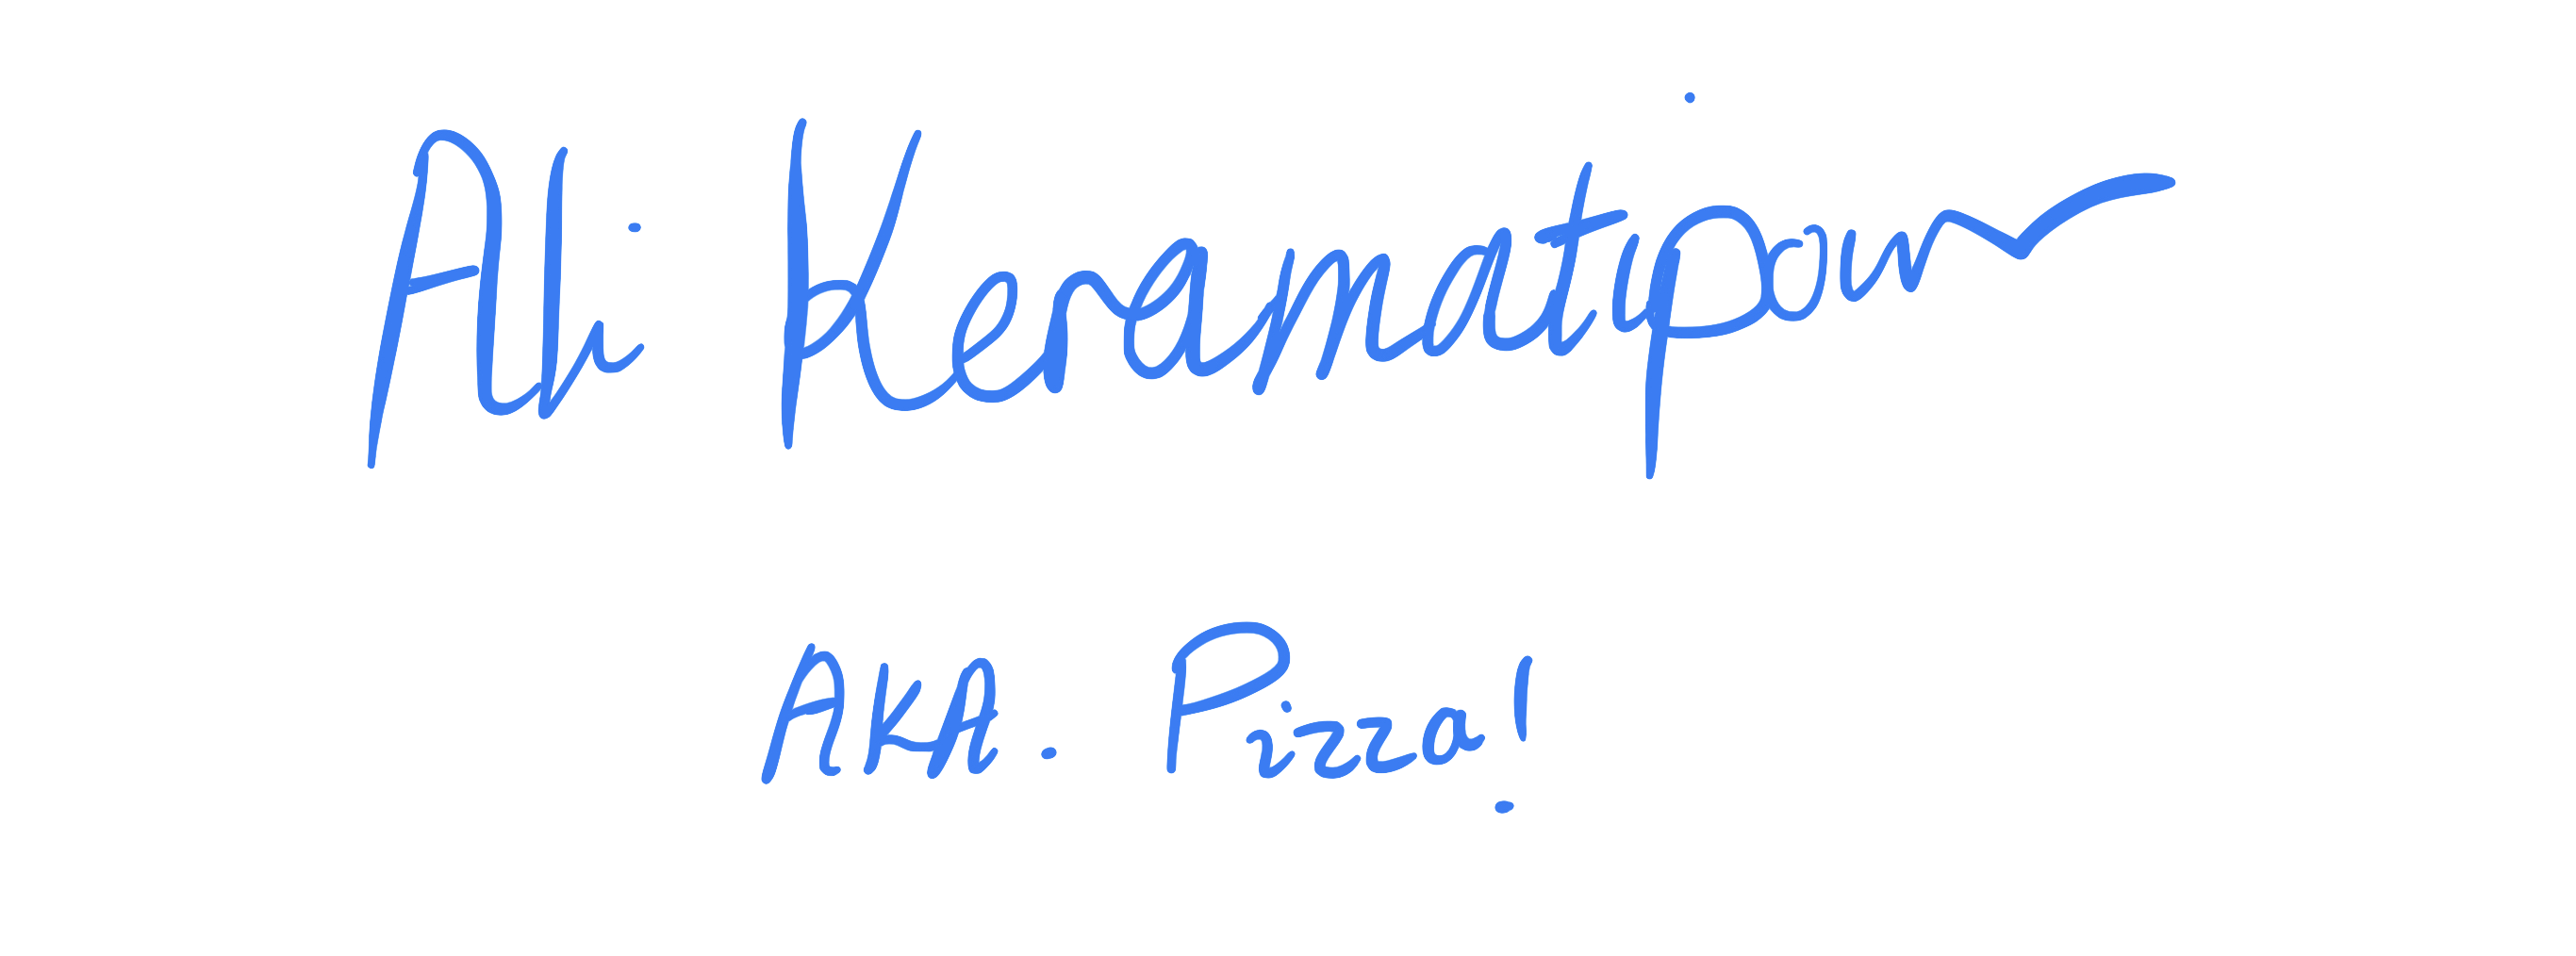 Ali Keramatipour
AKA. Pizza!